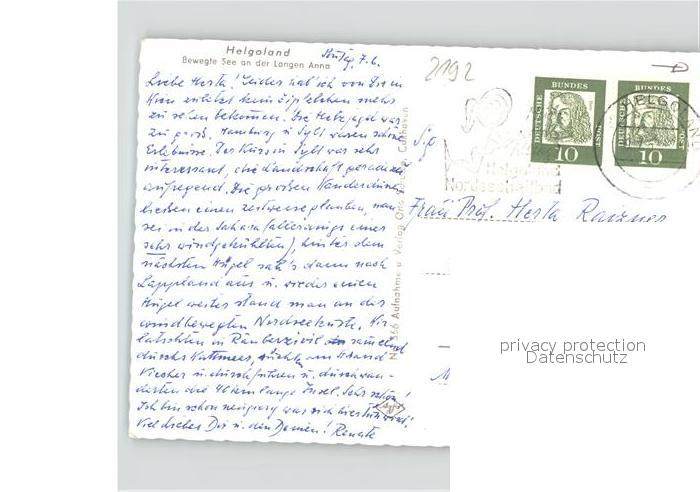 Helgoland
Bewegte See an der Langen Anna
Sonntag, 7. 6.
2192
Liebe Herta! Leider hab' ich von Dir in
Kiel zuletzt kein Zipfelchen mehr
zu sehen bekommen. Die Hetzjagd war
zu groß. Hamburg u. Sylt waren schöne
Erlebnisse. Der Kurs in Sylt war sehr
interessant, die Landschaft geradezu
aufregend. Die großen Wanderdünen
ließen einen zeitweise glauben, man
sei in der Sahara (allerdings einer
sehr windgekühlten), hinter dem
nächsten Hügel sah's dann nach
Lappland aus u. wieder einen
Hügel weiter stand man an der
windbewegten Nordseeküste. Wir
latschten in Räuberzivil
durchs Wattmeer, am Strand
u. durchwan-
derten die lange Insel. Sehr schön!
Ich bin schon neugierig was sich hier tun wird.
Viel Liebes Dir u. den Deinen! Renate
Aufnahme u. Verlag Cuxhaven
DEUTSCHE BUNDESPOST
10
DEUTSCHE BUNDESPOST
10
HELGOLAND
Helgoland
Nordseeheilbad
Frau Prof. Herta Raizner
privacy protection
Datenschutz
Agfa